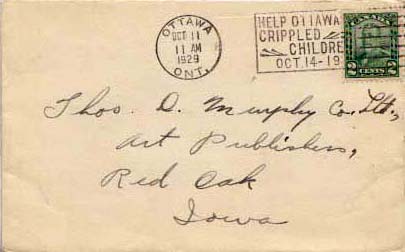 OTTAWA
OCT 11
11 AM
1929
ONT.
HELP OTTAWA
CRIPPLED
CHILDRE
OCT. 14-19
2 CENTS 2
Thos. D. Murphy Co. Ltd.,
Art Publishers,
Red Oak
Iowa